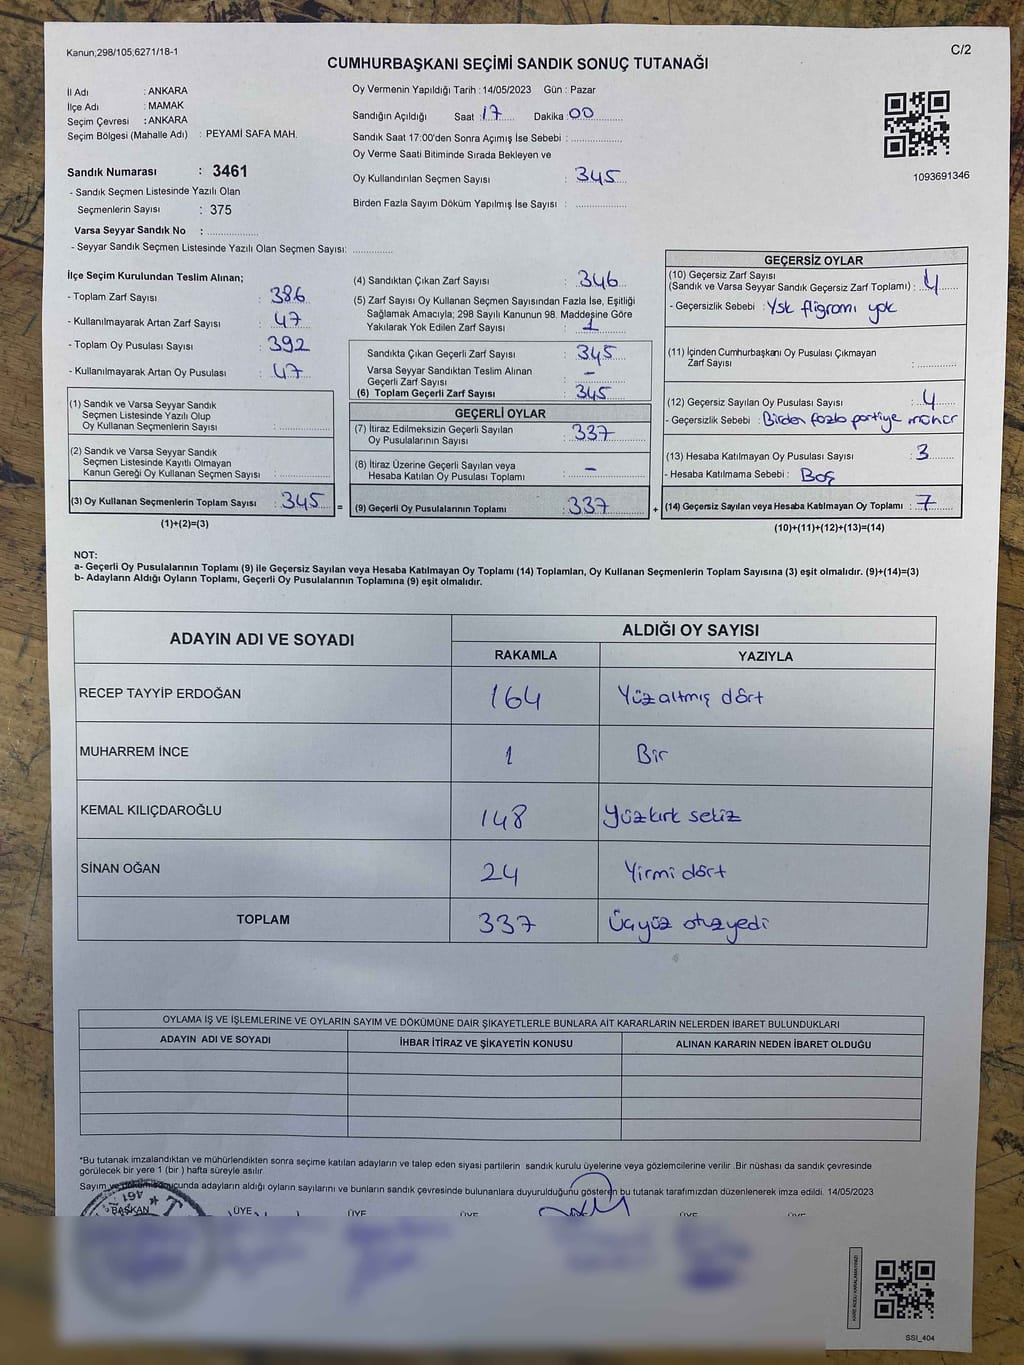 Kanun;298/105;6271/18-1
C/2
CUMHURBAŞKANI SEÇİMİ SANDIK SONUÇ TUTANAĞI
İl Adı : ANKARA
İlçe Adı : MAMAK
Seçim Çevresi : ANKARA
Seçim Bölgesi (Mahalle Adı) : PEYAMİ SAFA MAH.
Sandık Numarası : 3461
- Sandık Seçmen Listesinde Yazılı Olan
Seçmenlerin Sayısı : 375
Varsa Seyyar Sandık No : ..............
- Seyyar Sandık Seçmen Listesinde Yazılı Olan Seçmen Sayısı: ............
Oy Vermenin Yapıldığı Tarih : 14/05/2023 Gün : Pazar
Sandığın Açıldığı Saat : 17 Dakika : 00
Sandık Saat 17:00'den Sonra Açımış İse Sebebi : ................
Oy Verme Saati Bitiminde Sırada Bekleyen ve
Oy Kullandırılan Seçmen Sayısı : 345
Birden Fazla Sayım Döküm Yapılmış İse Sayısı : ................
1093691346
İlçe Seçim Kurulundan Teslim Alınan;
- Toplam Zarf Sayısı : 386
- Kullanılmayarak Artan Zarf Sayısı : 47
- Toplam Oy Pusulası Sayısı : 392
- Kullanılmayarak Artan Oy Pusulası : 47
(1) Sandık ve Varsa Seyyar Sandık
Seçmen Listesinde Yazılı Olup
Oy Kullanan Seçmenlerin Sayısı : ................
(2) Sandık ve Varsa Seyyar Sandık
Seçmen Listesinde Kayıtlı Olmayan
Kanun Gereği Oy Kullanan Seçmen Sayısı : ................
(3) Oy Kullanan Seçmenlerin Toplam Sayısı : 345 =
(1)+(2)=(3)
(4) Sandıktan Çıkan Zarf Sayısı : 346
(5) Zarf Sayısı Oy Kullanan Seçmen Sayısından Fazla İse, Eşitliği
Sağlamak Amacıyla; 298 Sayılı Kanunun 98. Maddesine Göre
Yakılarak Yok Edilen Zarf Sayısı : 1
Sandıkta Çıkan Geçerli Zarf Sayısı : 345
Varsa Seyyar Sandıktan Teslim Alınan
Geçerli Zarf Sayısı : –
(6) Toplam Geçerli Zarf Sayısı : 345
GEÇERLİ OYLAR
(7) İtiraz Edilmeksizin Geçerli Sayılan
Oy Pusulalarının Sayısı : 337
(8) İtiraz Üzerine Geçerli Sayılan veya
Hesaba Katılan Oy Pusulası Toplamı : –
(9) Geçerli Oy Pusulalarının Toplamı : 337 +
GEÇERSİZ OYLAR
(10) Geçersiz Zarf Sayısı
(Sandık ve Varsa Seyyar Sandık Geçersiz Zarf Toplamı) : 4
- Geçersizlik Sebebi : Ysk fligromı yok
(11) İçinden Cumhurbaşkanı Oy Pusulası Çıkmayan
Zarf Sayısı : ................
(12) Geçersiz Sayılan Oy Pusulası Sayısı : 4
- Geçersizlik Sebebi : Birden fazla partiye mühür
(13) Hesaba Katılmayan Oy Pusulası Sayısı : 3
- Hesaba Katılmama Sebebi : Boş
(14) Geçersiz Sayılan veya Hesaba Katılmayan Oy Toplamı : 7
(10)+(11)+(12)+(13)=(14)
NOT:
a- Geçerli Oy Pusulalarının Toplamı (9) ile Geçersiz Sayılan veya Hesaba Katılmayan Oy Toplamı (14) Toplamları, Oy Kullanan Seçmenlerin Toplam Sayısına (3) eşit olmalıdır. (9)+(14)=(3)
b- Adayların Aldığı Oyların Toplamı, Geçerli Oy Pusulalarının Toplamına (9) eşit olmalıdır.
ADAYIN ADI VE SOYADI
ALDIĞI OY SAYISI
RAKAMLA YAZIYLA
RECEP TAYYİP ERDOĞAN 164 Yüzaltmış dört
MUHARREM İNCE 1 Bir
KEMAL KILIÇDAROĞLU 148 Yüzkırk sekiz
SİNAN OĞAN 24 Yirmi dört
TOPLAM 337 Üçyüz otuzyedi
OYLAMA İŞ VE İŞLEMLERİNE VE OYLARIN SAYIM VE DÖKÜMÜNE DAİR ŞİKAYETLERLE BUNLARA AİT KARARLARIN NELERDEN İBARET BULUNDUKLARI
ADAYIN ADI VE SOYADI İHBAR İTİRAZ VE ŞİKAYETİN KONUSU ALINAN KARARIN NEDEN İBARET OLDUĞU
*Bu tutanak imzalandıktan ve mühürlendikten sonra seçime katılan adayların ve talep eden siyasi partilerin sandık kurulu üyelerine veya gözlemcilerine verilir .Bir nüshası da sandık çevresinde
görülecek bir yere 1 (bir ) hafta süreyle asılır.
Sayım ve dökümü sonucunda adayların aldığı oyların sayılarını ve bunların sandık çevresinde bulunanlara duyurulduğunu gösteren bu tutanak tarafımızdan düzenlenerek imza edildi. 14/05/2023
BAŞKAN ÜYE ÜYE ÜYE ÜYE ÜYE
SSI_404